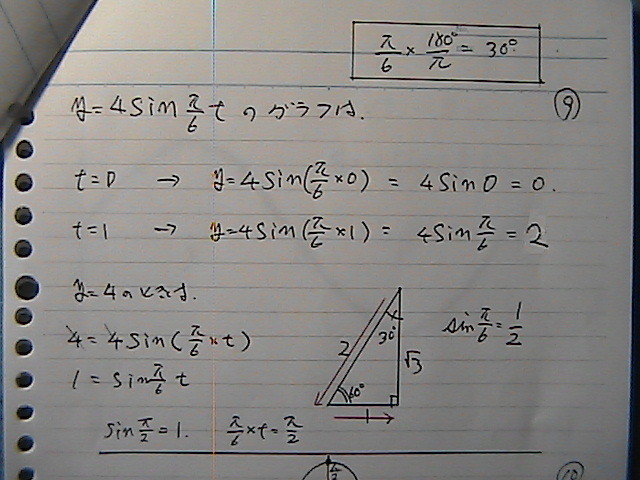 π/6 × 180°/π = 30°
⑨
y=4sin π/6 t のグラフは.
t=0 → y=4sin(π/6×0) = 4sin0 = 0.
t=1 → y=4sin(π/6×1) = 4sin π/6 = 2
y=4のときは.
4=4sin(π/6×t)
1=sin π/6 t
sin π/2=1. π/6×t=π/2
2
30°
√3
60°
1
sin π/6=1/2
⑩
π/2